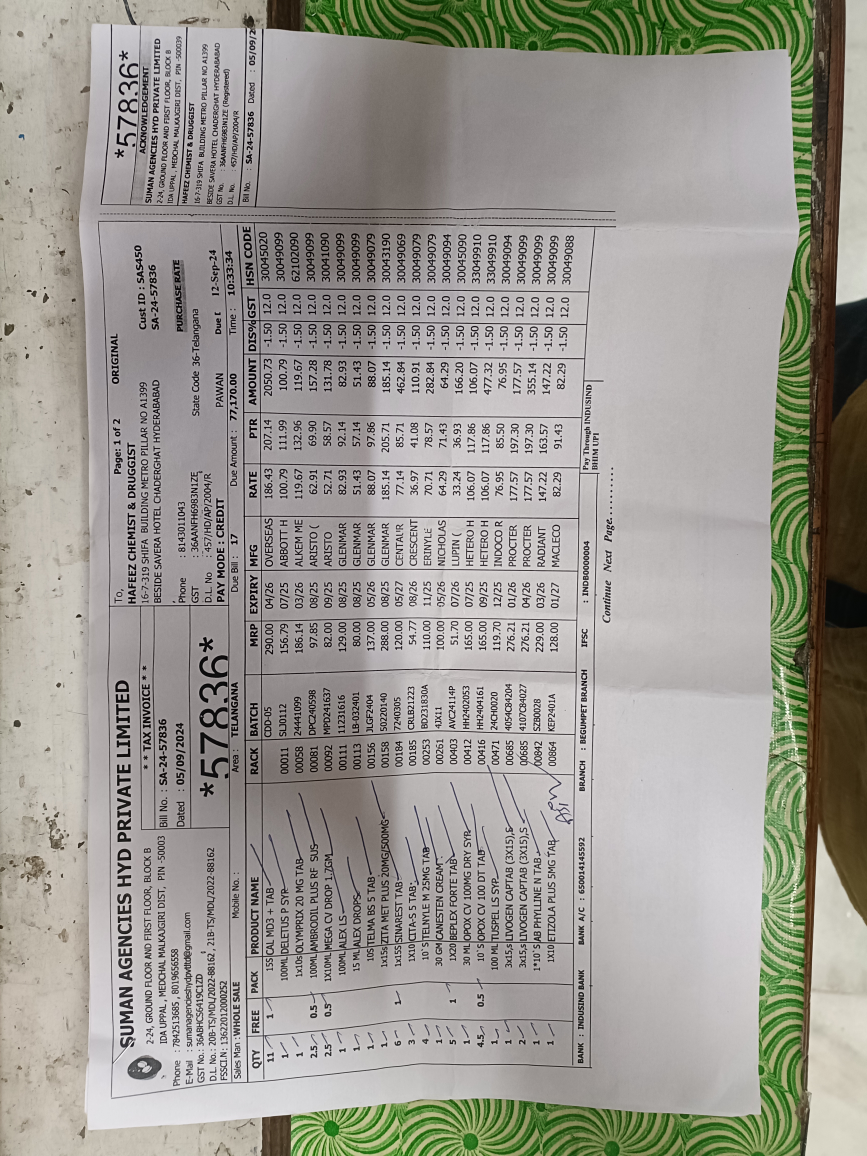 SUMAN AGENCIES HYD PRIVATE LIMITED
2-24, GROUND FLOOR AND FIRST FLOOR, BLOCK B
IDA UPPAL , MEDCHAL MALKAJGIRI DIST, PIN -50003
Phone : 7842513685 , 8019656558
E-Mail : sumanagencieshydpvtltd@gmail.com
GST No.: 36ABHCS6419C1ZD
D.L. No.: 20B-TS/MDL/2022-88162, 21B-TS/MDL/2022-88162
FSSCI.N: 13622012000252
Sales Man : WHOLE SALE Mobile No. :
* * TAX INVOICE * *
Bill No. : SA-24-57836
Dated : 05/09/2024
*57836*
Area : TELANGANA
To, Page: 1 of 2 ORIGINAL
HAFEEZ CHEMIST & DRUGGIST Cust ID : SAS450
16-7-319 SHIFA BUILDING METRO PILLAR NO A1399 SA-24-57836
BESIDE SAVERA HOTEL CHADERGHAT HYDERABABAD
Phone : 8143011043 PURCHASE RATE
GST : 36AANFH6983N1ZE State Code 36-Telangana
D.L. No : 457/HD/AP/2004/R
PAY MODE : CREDIT PAWAN Due [ 12-Sep-24
Due Bill : 17 Due Amount : 77,170.00 Time : 10:33:34
QTY FREE PACK PRODUCT NAME RACK BATCH MRP EXPIRY MFG RATE PTR AMOUNT DIS% GST HSN CODE
11 1 15S CAL MD3 + TAB CDD-05 290.00 04/26 OVERSEAS 186.43 207.14 2050.73 -1.50 12.0 30045020
1 100ML DELETUS P SYR 00011 SLD0112 156.79 07/25 ABBOTT H 100.79 111.99 100.79 -1.50 12.0 30049099
1 1x10s OLYMPRIX 20 MG TAB 00058 24441099 186.14 03/26 ALKEM ME 119.67 132.96 119.67 -1.50 12.0 62102090
2.5 0.5 100ML AMBRODIL PLUS RF SUS 00081 DPC240598 97.85 08/25 ARISTO ( 62.91 69.90 157.28 -1.50 12.0 30049099
2.5 0.5 1X10ML MEGA CV DROP 1.7GM 00092 MPD241637 82.00 09/25 ARISTO 52.71 58.57 131.78 -1.50 12.0 30041090
1 100ML ALEX LS 00111 11231616 129.00 08/25 GLENMAR 82.93 92.14 82.93 -1.50 12.0 30049099
1 15 ML ALEX DROPS 00113 LB-032401 80.00 08/25 GLENMAR 51.43 57.14 51.43 -1.50 12.0 30049099
1 10S TELMA BS 5 TAB 00156 JLGF2404 137.00 05/26 GLENMAR 88.07 97.86 88.07 -1.50 12.0 30049079
1 1x15s ZITA MET PLUS 20MG/500MG 00158 50220140 288.00 08/25 GLENMAR 185.14 205.71 185.14 -1.50 12.0 30043190
6 1 1x15S SINAREST TAB 00184 7240305 120.00 05/27 CENTAUR 77.14 85.71 462.84 -1.50 12.0 30049069
3 1X10 CITA-S 5 TAB 00185 CRLB21223 54.77 08/26 CRESCENT 36.97 41.08 110.91 -1.50 12.0 30049079
4 10`S TELNYLE M 25MG TAB 00253 BD231830A 110.00 11/25 ERINYLE 70.71 78.57 282.84 -1.50 12.0 30049079
1 30 GM CANESTEN CREAM 00261 4JX11 100.00 05/26 NICHOLAS 64.29 71.43 64.29 -1.50 12.0 30049094
5 1 1X20 BEPLEX FORTE TAB 00403 AVC24114P 51.70 07/26 LUPIN ( 33.24 36.93 166.20 -1.50 12.0 30045090
1 30 ML OPOX CV 100MG DRY SYR 00412 HH2402053 165.00 07/25 HETERO H 106.07 117.86 106.07 -1.50 12.0 33049910
4.5 0.5 10`S OPOX CV 100 DT TAB 00416 HH2404161 165.00 09/25 HETERO H 106.07 117.86 477.32 -1.50 12.0 33049910
1 100 ML TUSPEL LS SYP 00471 24CH0020 119.70 12/25 INDOCO R 76.95 85.50 76.95 -1.50 12.0 30049094
1 3x15,s LIVOGEN CAPTAB (3X15),S 00685 4054C84204 276.21 01/26 PROCTER 177.57 197.30 177.57 -1.50 12.0 30049099
2 3x15,s LIVOGEN CAPTAB (3X15),S 00685 4107C84027 276.21 04/26 PROCTER 177.57 197.30 355.14 -1.50 12.0 30049099
1 1*10`S AB PHYLLINE N TAB 00842 SZB0028 229.00 03/26 RADIANT 147.22 163.57 147.22 -1.50 12.0 30049099
1 1X10 ETIZOLA PLUS 5MG TAB 00864 KEP2401A 128.00 01/27 MACLECO 82.29 91.43 82.29 -1.50 12.0 30049088
BANK : INDUSIND BANK BANK A/C : 650014145592 BRANCH : BEGUMPET BRANCH IFSC : INDB0000004 Pay Through INDUSIND
BHIM UPI
Continue Next Page..........
*57836*
ACKNOWLEDGEMENT
SUMAN AGENCIES HYD PRIVATE LIMITED
2-24, GROUND FLOOR AND FIRST FLOOR, BLOCK B
IDA UPPAL , MEDCHAL MALKAJGIRI DIST, PIN -500039
HAFEEZ CHEMIST & DRUGGIST
16-7-319 SHIFA BUILDING METRO PILLAR NO A1399
BESIDE SAVERA HOTEL CHADERGHAT HYDERABABAD
GST No. : 36AANFH6983N1ZE (Registered)
D.L. No. : 457/HD/AP/2004/R
Bill No. : SA-24-57836 Dated : 05/09/2